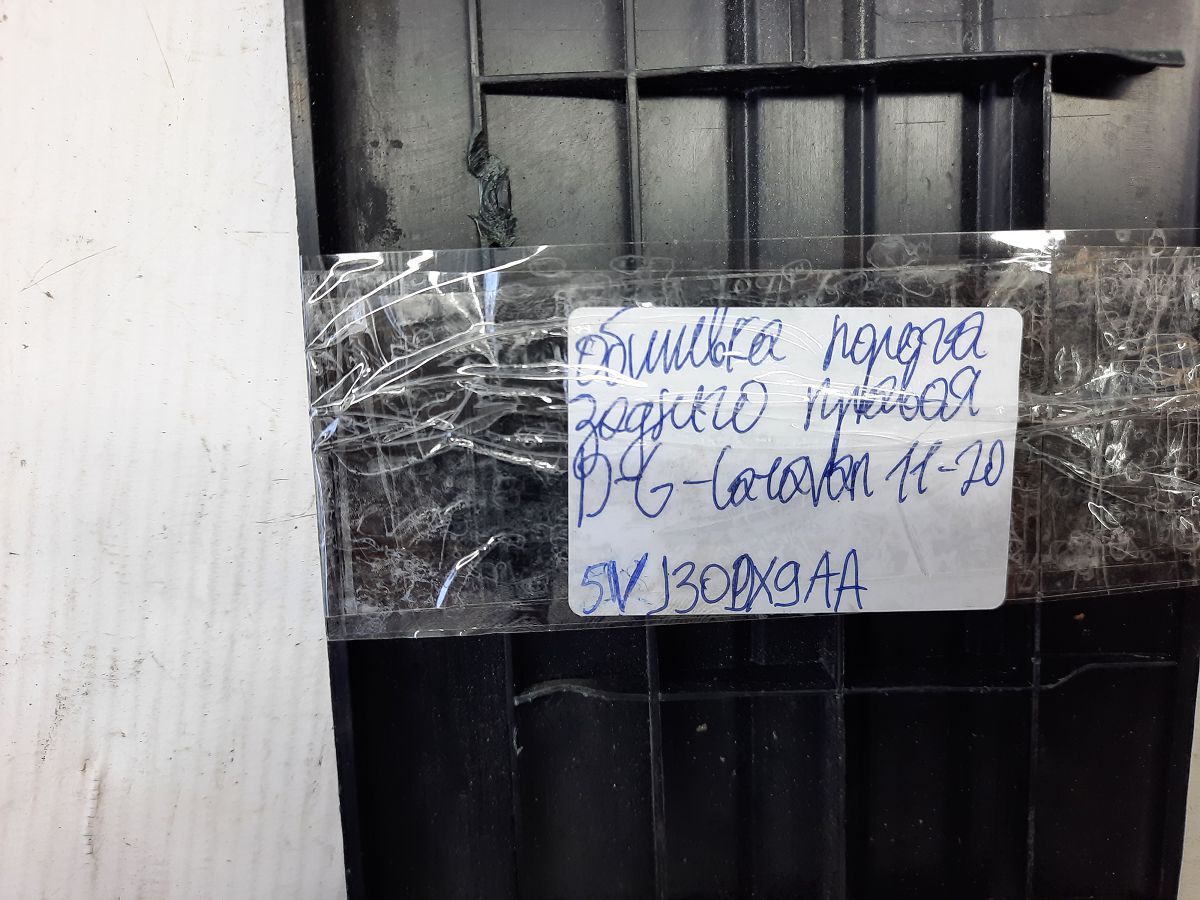 обшивка порога
заднего правая
D-G-Caravan 11-20
5VJ30DX9AA